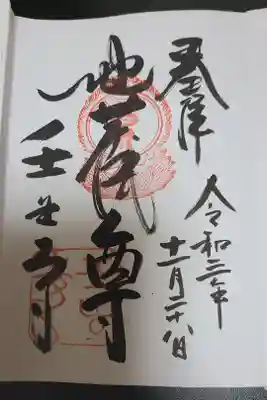 奉拝
令和三年
十一月二十八日
地蔵尊
壬生寺